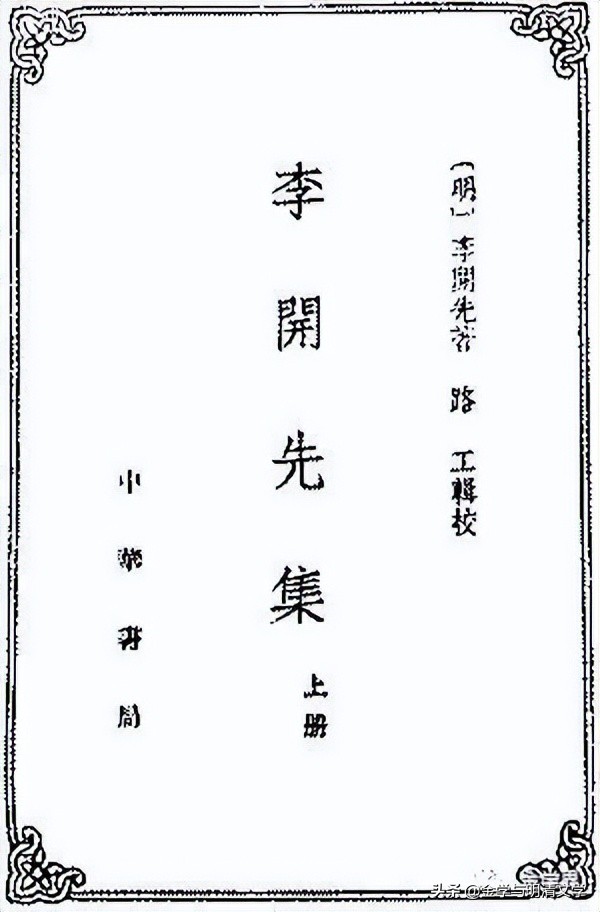 〔明〕李開先著 路 工輯校
李開先集
上册
中華書局
头条 @金学与明清文学